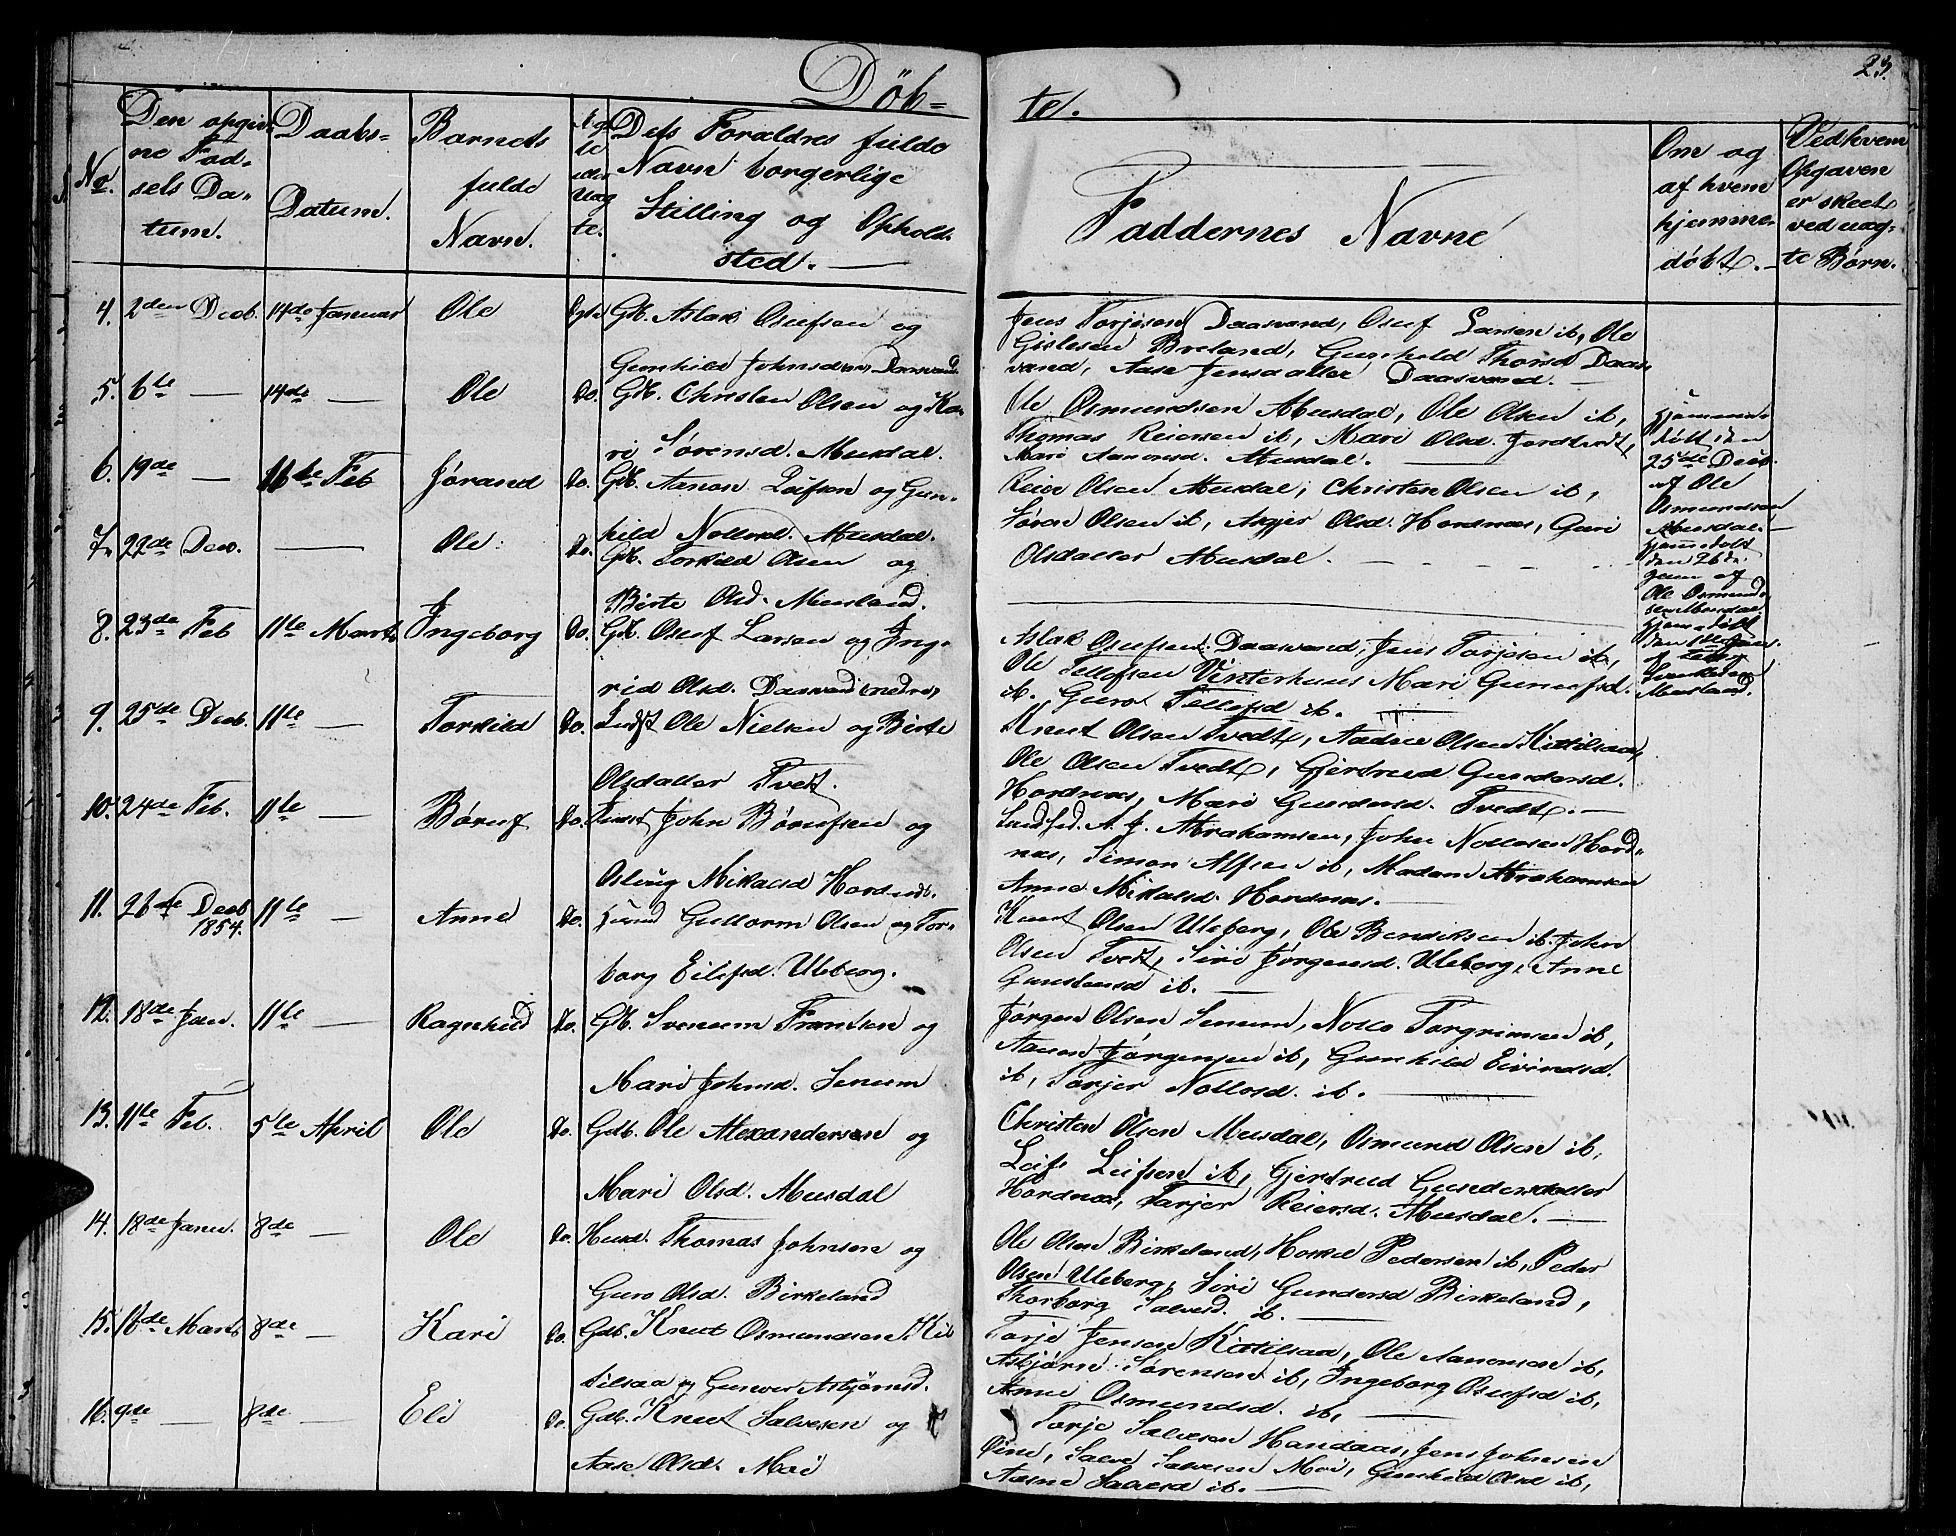 23.
Döb=
te.
No.
Den opgiv
ne Föd-
sels Da-
tum.
Daabs-
Datum.
Barnets
fulde
Navn.
Dets Forældres fulde
Navn borgerlige
Stilling og Opholds
sted.
Faddernes Navne
Om og
af hvem
hjemme-
døbt.
Ved hvem
Opgaven
er skeet
ved uæg-
te Børn.
4. 2den Decb. 14de Januar Ole Egte Gbr. Aslak Osufsen og
Gunhild Johnsd. Daasvand
Jens Torjesen Daasvand, Osuf Larsen ib, Ole
Gislesen Breland, Gunhild Thorsd Daas
vand, Aase Jensdatter Daasvand.
5. 6te — 14de — Ole Do. Christen Olsen og Ka-
ri Sørensd. Musdal.
Ole Osmundsen Musdal, Ole Olsen ib,
Thomas Reiersen ib, Mari Olsd.
Mari Aanonsd. Musdal.
Hjemme-
døbt den
25de Decb.
af Ole
Osmundsen
Musdal.
6. 19de — 11te Feb Jórand Do. Aanon Leifsen og Gun-
hild Nollosd. Musdal.
Reier Olsen Musdal, Christen Olsen ib,
Søren Olsen ib, Asgjer Olsd. Hordnæs, Guri
Olsdatter Musdal.
den 26de
af
Ole Osmund-
sen Musdal
7. 22de Dec. — Ole Do. Torkild Olsen og
Birte Olsd. Musland.
den 1ste Jan.
af
Musland.
8. 23de Feb 11te Marts Ingeborg Do. Osuf Larsen og Ing-
rid Olsd. Daasvand nedre
Aslak Osufsen Daasvand, Jens Torjesen ib,
Ole Tellefsen Vinterhuus Mari Gunufsd.
ib. Guro Tellefsd ib.
9. 25de Decb. 11te — Torkild Do. Indst Ole Nielsen og Birte
Olsdatter Tvedt.
Knut Olsen Tvedt, Aadne Olsen Kittilsaa,
Ole Olsen Tvedt, Gjertrud Gundersd.
Hordnæs, Mari Gundersd. Tvedt.
10. 24de Feb. 11te — Böruf Do. John Börufsen og
Oslaug Mikalsd Hordnæs.
A. J. Abrahamsen, John Nollosen Hord-
næs, Simon Alfsen ib, Madam Abrahamsen
Anne Mikalsd. Hordnæs.
11. 26de Decb 1854. 11te — Anne Do. Guttorm Olsen og Tor-
borg Eilifsd. Uleberg.
Knut Olsen Uleberg, Ole Bendiksen ib. John
Olsen Tvedt, Siri Jørgensd. Uleberg, Anne
Gunstensd ib.
12. 18de Jan. 11te — Ragnhild Do. Svennum Frantsen og
Mari Johnsd. Senum
Jørgen Olsen Senum, Nollo Torgrimsen ib,
Aanon Jørgensen ib, Gunhild Eivindsd.
ib, Torjer Nollosd. ib.
13. 11te Feb. 5te April Ole Do. Gdb. Ole Alexandersen og
Mari Olsd. Musdal
Christen Olsen Musdal, Osmund Olsen ib,
Leif Leifsen ib, Gjertrud Gundersdatter
Hordnæs, Tarjer Reiersd. Musdal.
14. 18de Janu. 8de — Ole Do. Husd. Thomas Johnsen og
Guro Olsd. Birkeland
Ole Olsen Birkeland, Peder­sen ib, Peder
Olsen Uleberg, Siri Gundersd Birkeland,
Thorborg Salvesd. ib.
15. 16de Marts 8de — Kari Do. Gdb. Knut Osmundsen Kit
tilsaa og Gunver Asbjørnsd.
Torje Jensen Kittilsaa, Ole Aanonsen ib,
Asbjørn Sørensen ib, Ingeborg Osufsd ib,
Anne Osmundsd. ib,
16. 9de — 8de — Eli Do. Gdb. Knut Salvesen og
Aase Olsd. Moi
Torje Salvesen Handaas, Jens Johnsen
Øine, Salve Salvesen Moi, Gunhild Olsd ib,
Aasne Salvesd ib.